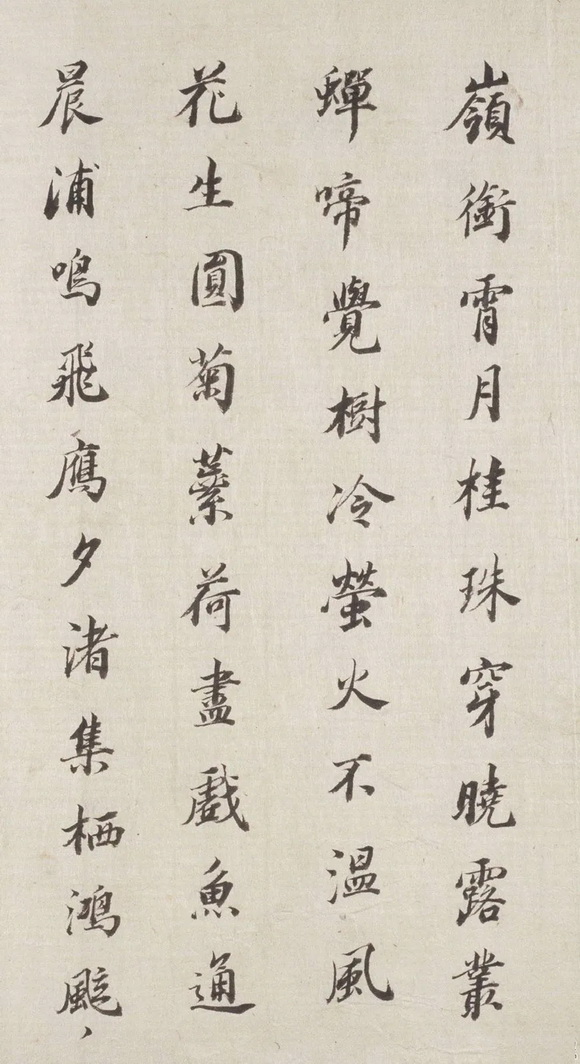 嶺銜霄月桂珠穿曉露叢
蟬啼覺樹冷螢火不溫風
花生圓菊蘂荷盡戲魚通
晨浦鳴飛鴈夕渚集栖鴻颯〻